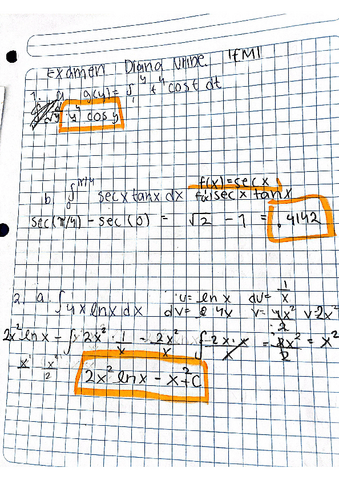 Examen Diana 1FM1
1. a. g(y) = ∫₁^y t⁴ cos t dt
y⁴ cos y
b. ∫₀^π/4 sec x tan x dx f(x) = sec x
sec x tan x
sec(π/4) - sec(0) = √2 - 1 = .4142
2. a. ∫4x ln x dx u = ln x du = 1/x
dv = 4x v = 4x²/2 v = 2x²
2x² ln x - ∫2x² · 1/x = 2x²/x ∫2x·x/x = 2x²/2 = x²
2x² ln x - x² + C